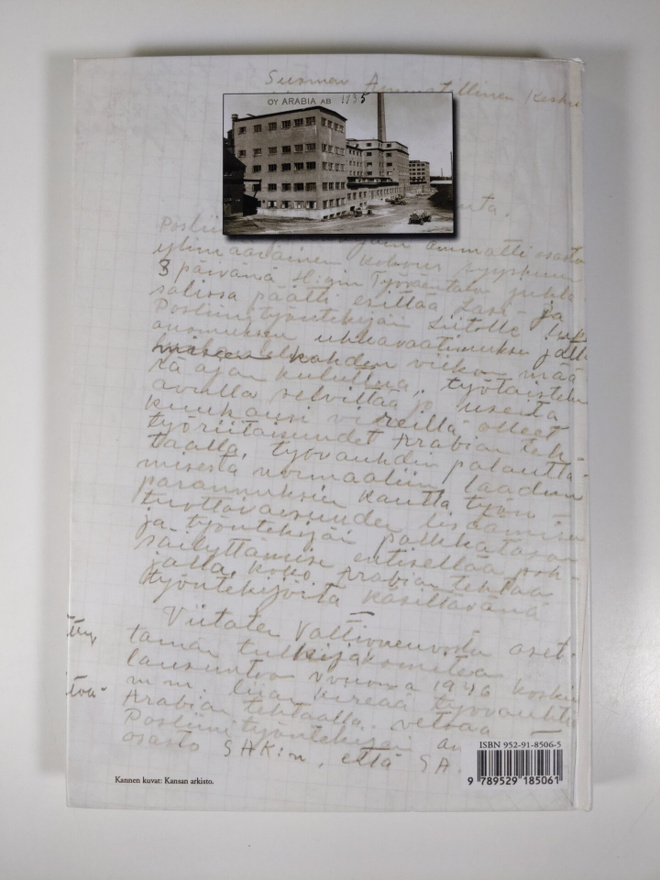 Suomen Ammatillinen Kesku
OY ARABIA AB 1935
Poslii ammattiosasto
ylimääräinen kokous syyskuun
3 päivänä 46:n Työväentalon juhla
salissa päätti esittää Lasi- ja
Posliinityöntekijäin Liitolle
anomuksen uhkavaatimuksen jätt
kahden viikon mää
rä ajan kuluttua, työtaistelu
avulla selvittää jo useita
kuukausi vireillä olleet
työriitaisuudet Arabian teh-
taalla, työvauhdin palautta-
misesta normaaliin, laadun
parannuksien kautta työn
tuottavaisuuden lisäämisen
ja työntekijäin palkkatason
säilyttämise entisellään poh-
jalla, koko Arabian tehtaan
työntekijöitä käsittävänä
Viitaten Valtioneuvoston aset-
taman tutkijakomitean
lausuntoon vuonna 1946 koskien
m.m. liian kireää työvauhtia
Arabian tehtaalla vetoaa
Posliinityöntekijäin am
osasto SAK:n, että SA.
ISBN 952-91-8506-5
9 789529 185061
Kannen kuvat: Kansan arkisto.